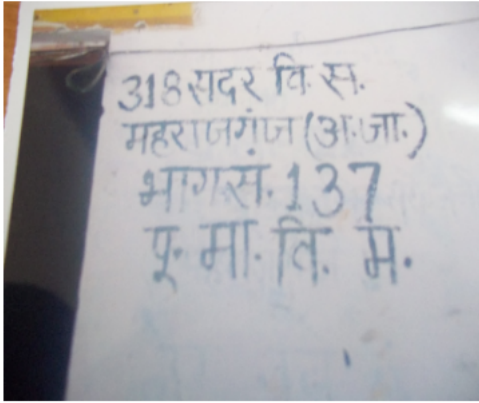 318 सदर वि. स.
महराजगंज (अ.जा.)
भाग सं. 137
पू. मा. वि. म.